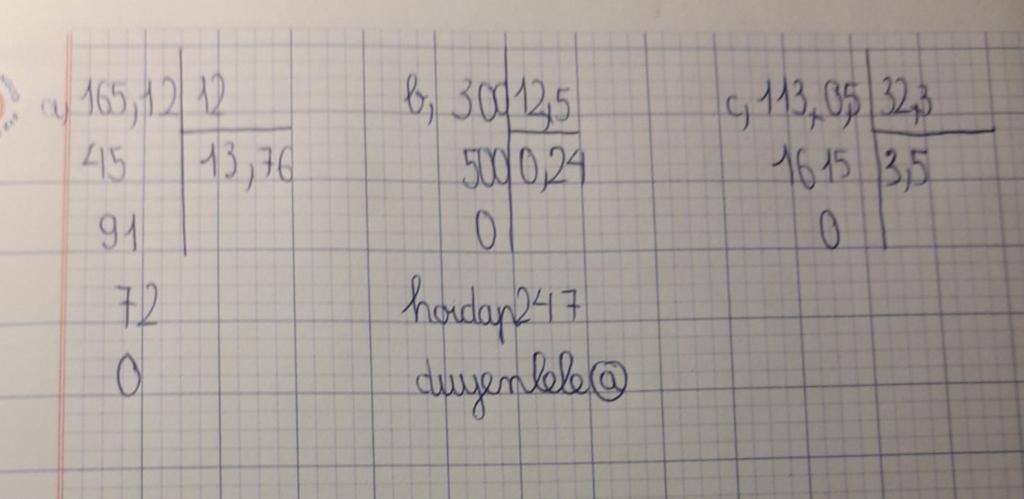 a, 165,12 12 b, 300 12,5 c, 113,05 32,3
45 13,76 500 0,24 1615 3,5
91 0 0
72 hoidap247
0 duyenlele@